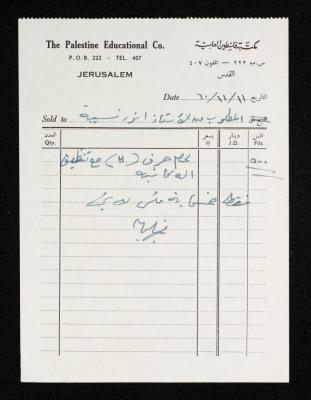 The Palestine Educational Co.
P.O.B. 222 - TEL. 407
JERUSALEM
مكتبة فلسطين العلمية
ص.ب ٢٢٢ - تلفون ٤٠٧
القدس
Date ٦٠/١١/١١ التاريخ
Sold to المطلوب من الاستاذ انور نسيبة
العدد Qty.
بسعر @
دينار J.D.
فلس Fils
لحام حرف (H) مع تنظيف ٥٠٠
الة كاتبة
فقط خمسماية فلس لا غير